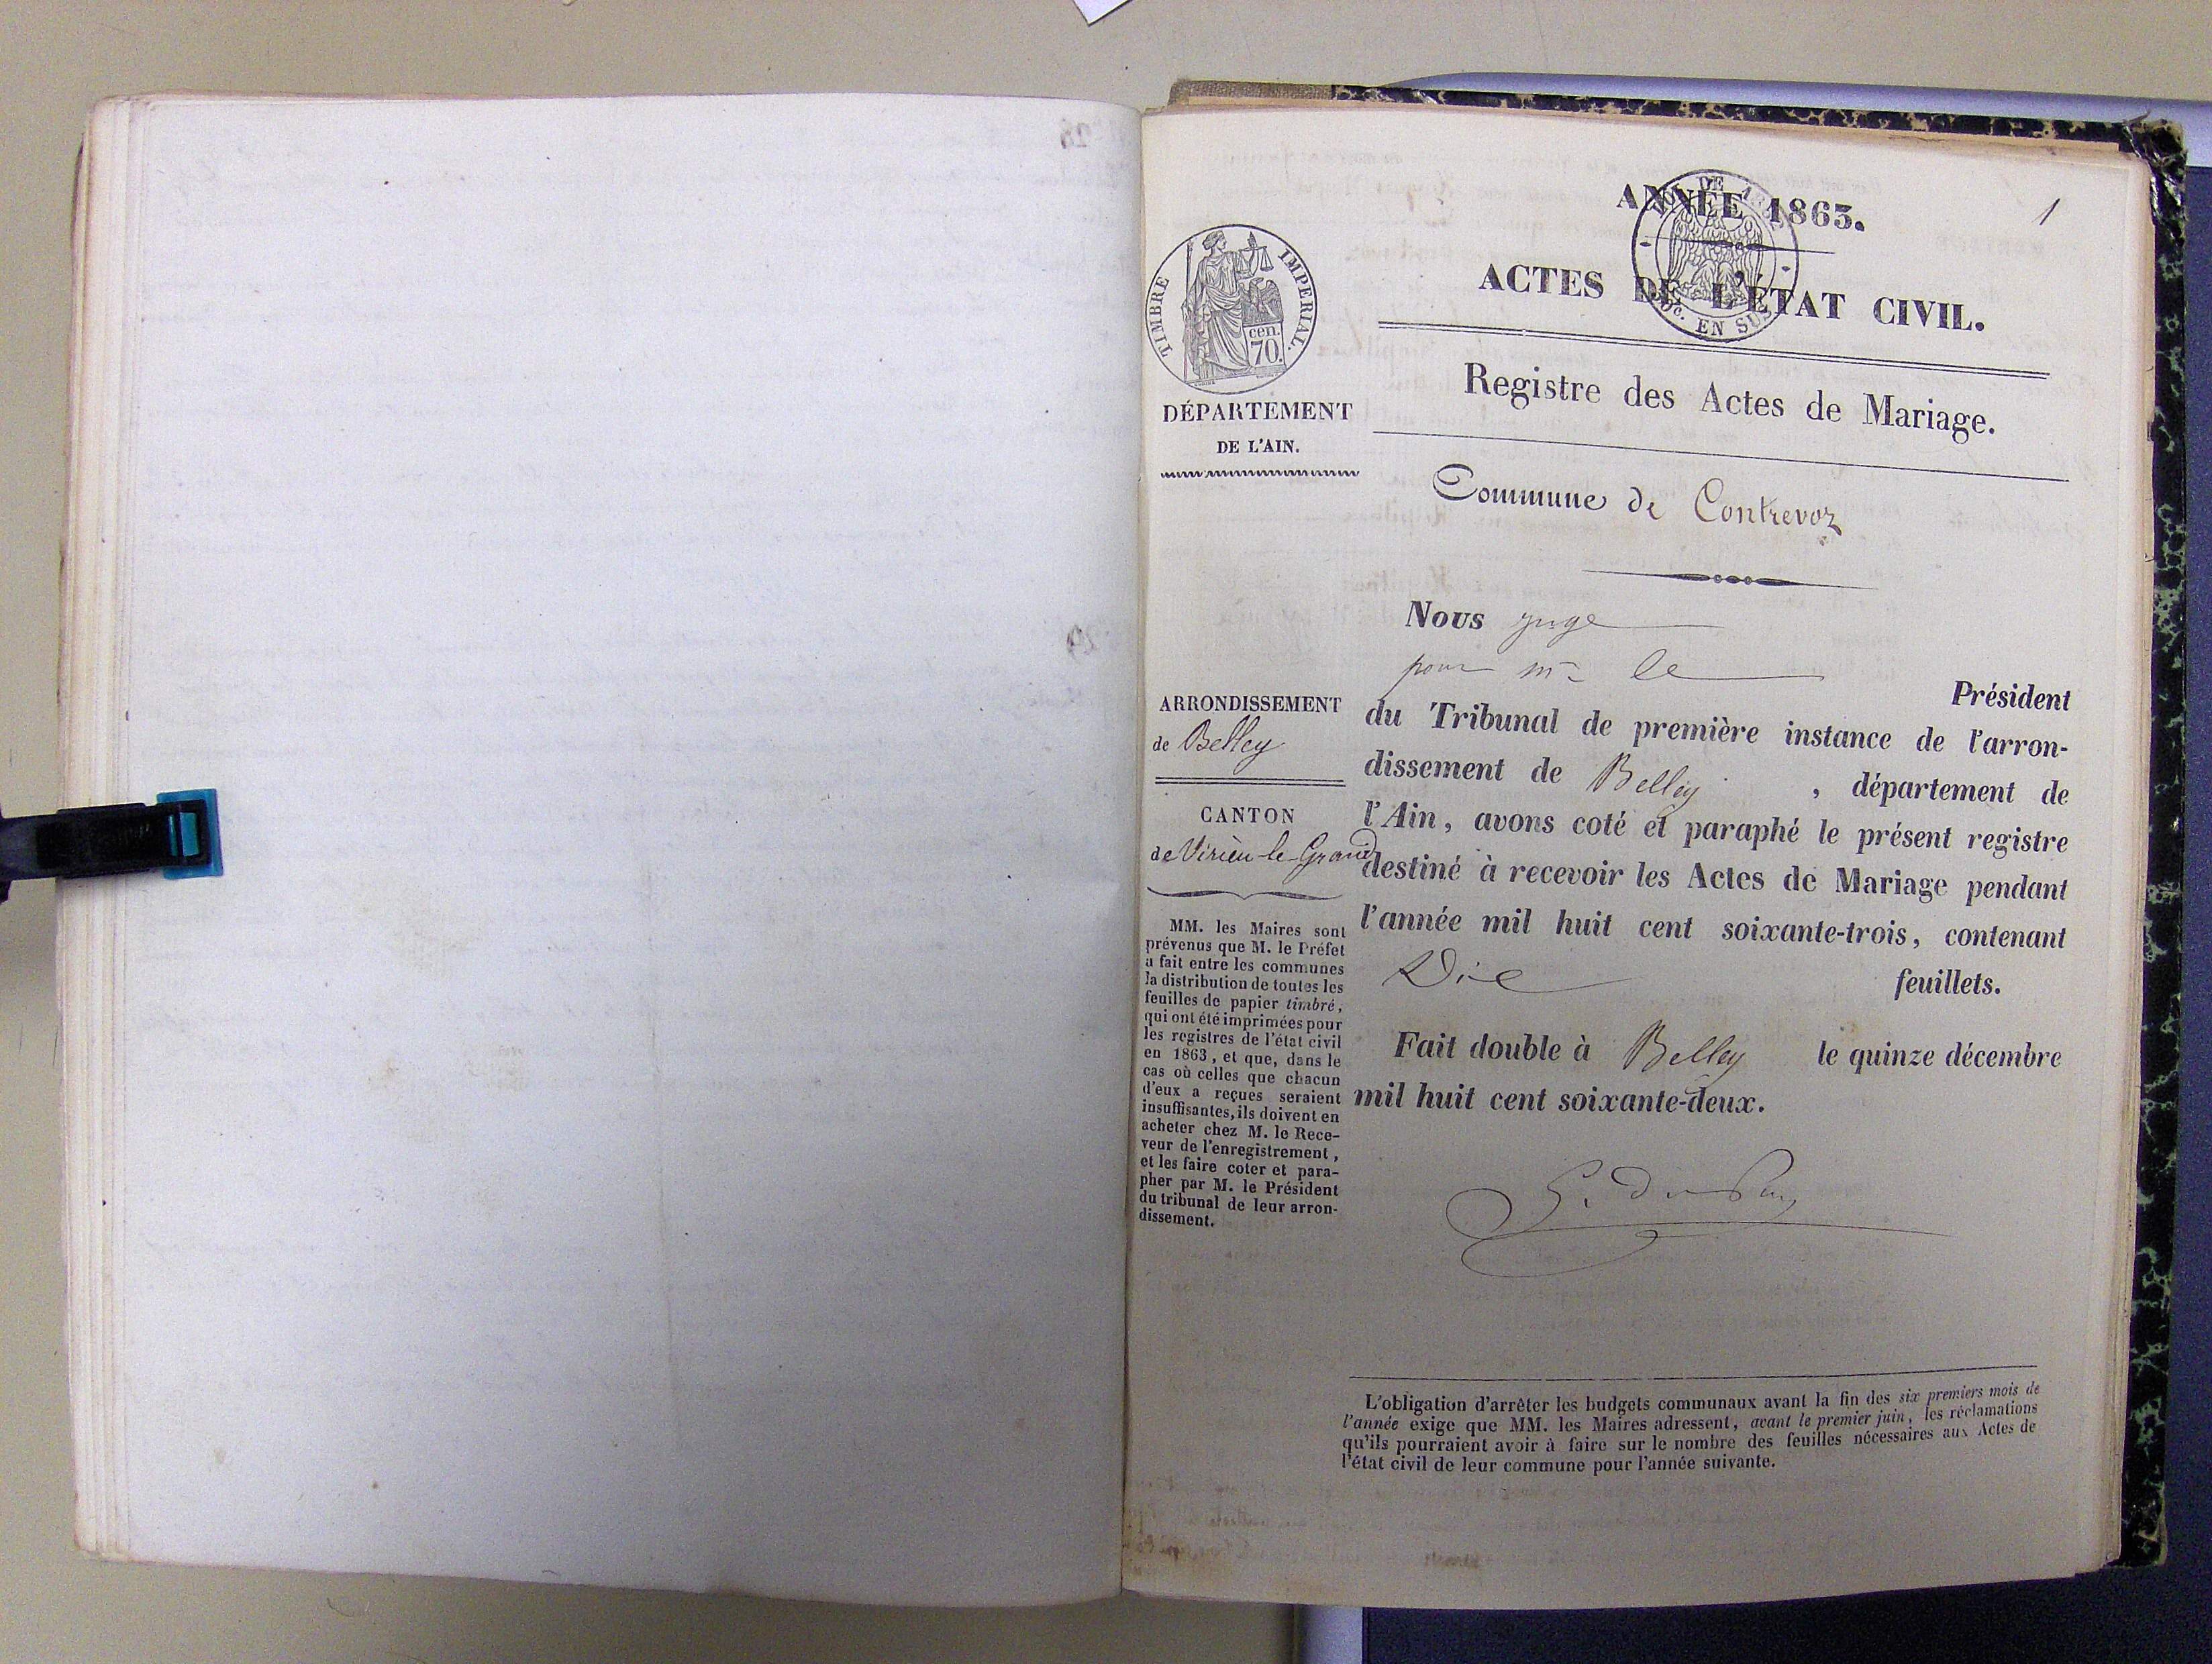 1
ANNÉE 1863.
ACTES DE L'ÉTAT CIVIL.
Registre des Actes de Mariage.
Commune de Contrevoz
TIMBRE IMPERIAL.
cen.
70.
DE
c. EN SUS
DÉPARTEMENT
DE L'AIN.
ARRONDISSEMENT
de Belley
CANTON
de Virieu-le-Grand
MM. les Maires sont
prévenus que M. le Préfet
a fait entre les communes
la distribution de toutes les
feuilles de papier timbré,
qui ont été imprimées pour
les registres de l'état civil
en 1863, et que, dans le
cas où celles que chacun
d'eux a reçues seraient
insuffisantes, ils doivent en
acheter chez M. le Rece-
veur de l'enregistrement,
et les faire coter et para-
pher par M. le Président
du tribunal de leur arron-
dissement.
Nous juge
pour mr le
Président
du Tribunal de première instance de l'arron-
dissement de Belley , département de
l'Ain, avons coté et paraphé le présent registre
destiné à recevoir les Actes de Mariage pendant
l'année mil huit cent soixante-trois, contenant
Dix feuillets.
Fait double à Belley le quinze décembre
mil huit cent soixante-deux.
L'obligation d'arrêter les budgets communaux avant la fin des six premiers mois de
l'année exige que MM. les Maires adressent, avant le premier juin, les réclamations
qu'ils pourraient avoir à faire sur le nombre des feuilles nécessaires aux Actes de
l'état civil de leur commune pour l'année suivante.